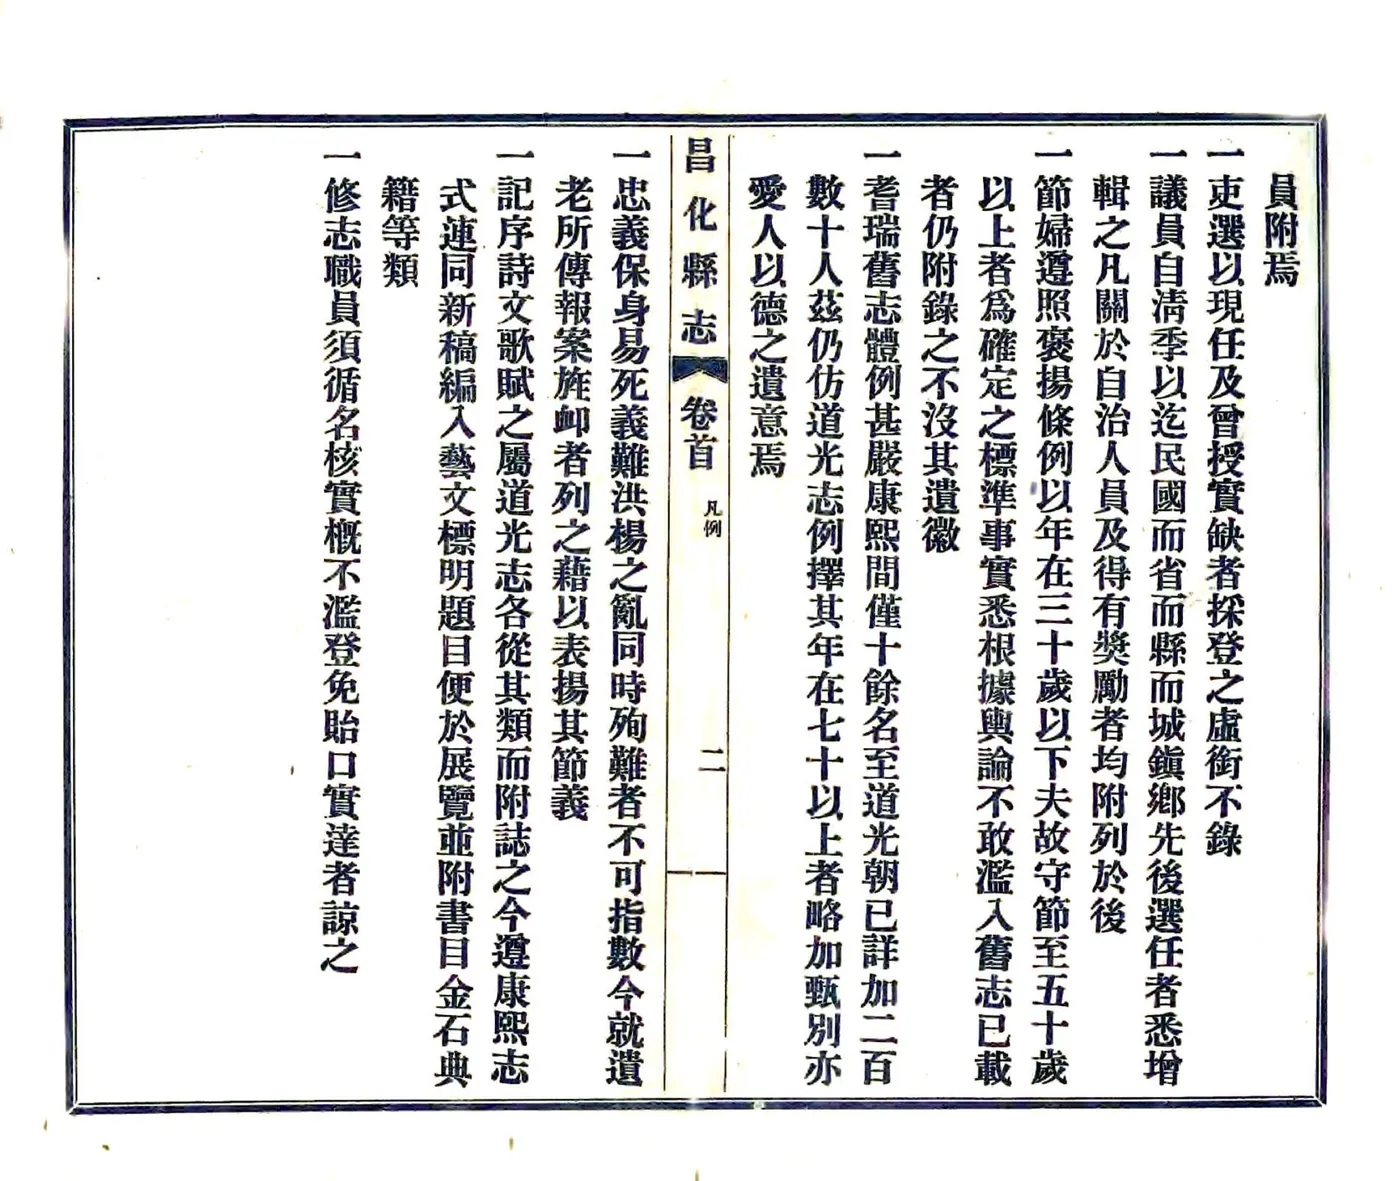 員附焉
一吏選以現任及曾授實缺者採登之虛銜不錄
一議員自淸季以迄民國而省而縣而城鎭鄕先後選任者悉增
輯之凡關於自治人員及得有奬勵者均附列於後
一節婦遵照褒揚條例以年在三十歲以下夫故守節至五十歲
以上者爲確定之標準事實悉根據輿論不敢濫入舊志已載
者仍附錄之不沒其遺徽
一耆瑞舊志體例甚嚴康熙間僅十餘名至道光朝已詳加二百
數十人茲仍仿道光志例擇其年在七十以上者略加甄別亦
愛人以德之遺意焉
昌化縣志 卷首 凡例 二
一忠義保身易死義難洪楊之亂同時殉難者不可指數今就遺
老所傳報案旌卹者列之藉以表揚其節義
一記序詩文歌賦之屬道光志各從其類而附誌之今遵康熙志
式連同新稿編入藝文標明題目便於展覽並附書目金石典
籍等類
一修志職員須循名核實槪不濫登免貽口實達者諒之